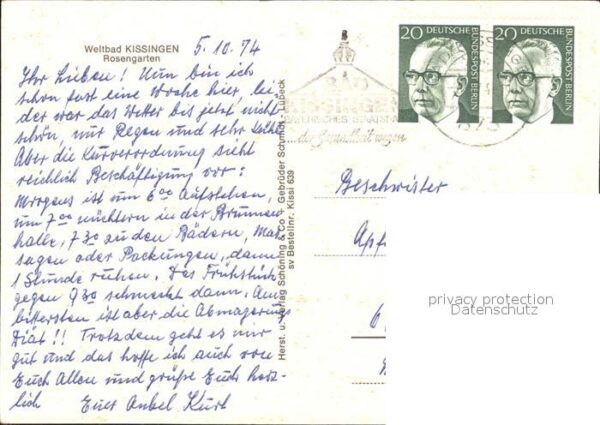 Weltbad KISSINGEN
Rosengarten
5.10.74
Ihr Lieben! Nun bin ich
schon fast eine Woche hier, lei-
der war das Wetter bis jetzt nicht
schön, nur Regen und sehr kalt.
Aber die Kurverordnung sieht
reichlich Beschäftigung vor:
Morgens ist um 6 00 Aufstehen,
um 7 00 nüchtern in der Brunnen
halle, 7 30 zu den Bädern, Mas-
sagen oder Packungen, dann
1 Stunde ruhen. Das Frühstück
gegen 9 30 schmeckt dann. Am
bittersten ist aber die Abmagerungs
Diät!! Trotzdem geht es mir
gut und das hoffe ich auch von
Euch Allen und grüße Euch herz-
lich Euer Onkel Kurt
Herst. u. Verlag Schöning & Co + Gebrüder Schmidt, Lübeck
sv Bestellnr. Kissi 639
BAD
KISSINGEN
BAYERISCHES STAATSBAD
...der Gesundheit wegen
20 DEUTSCHE
BUNDESPOST BERLIN
20 DEUTSCHE
BUNDESPOST BERLIN
Geschwister
privacy protection
Datenschutz